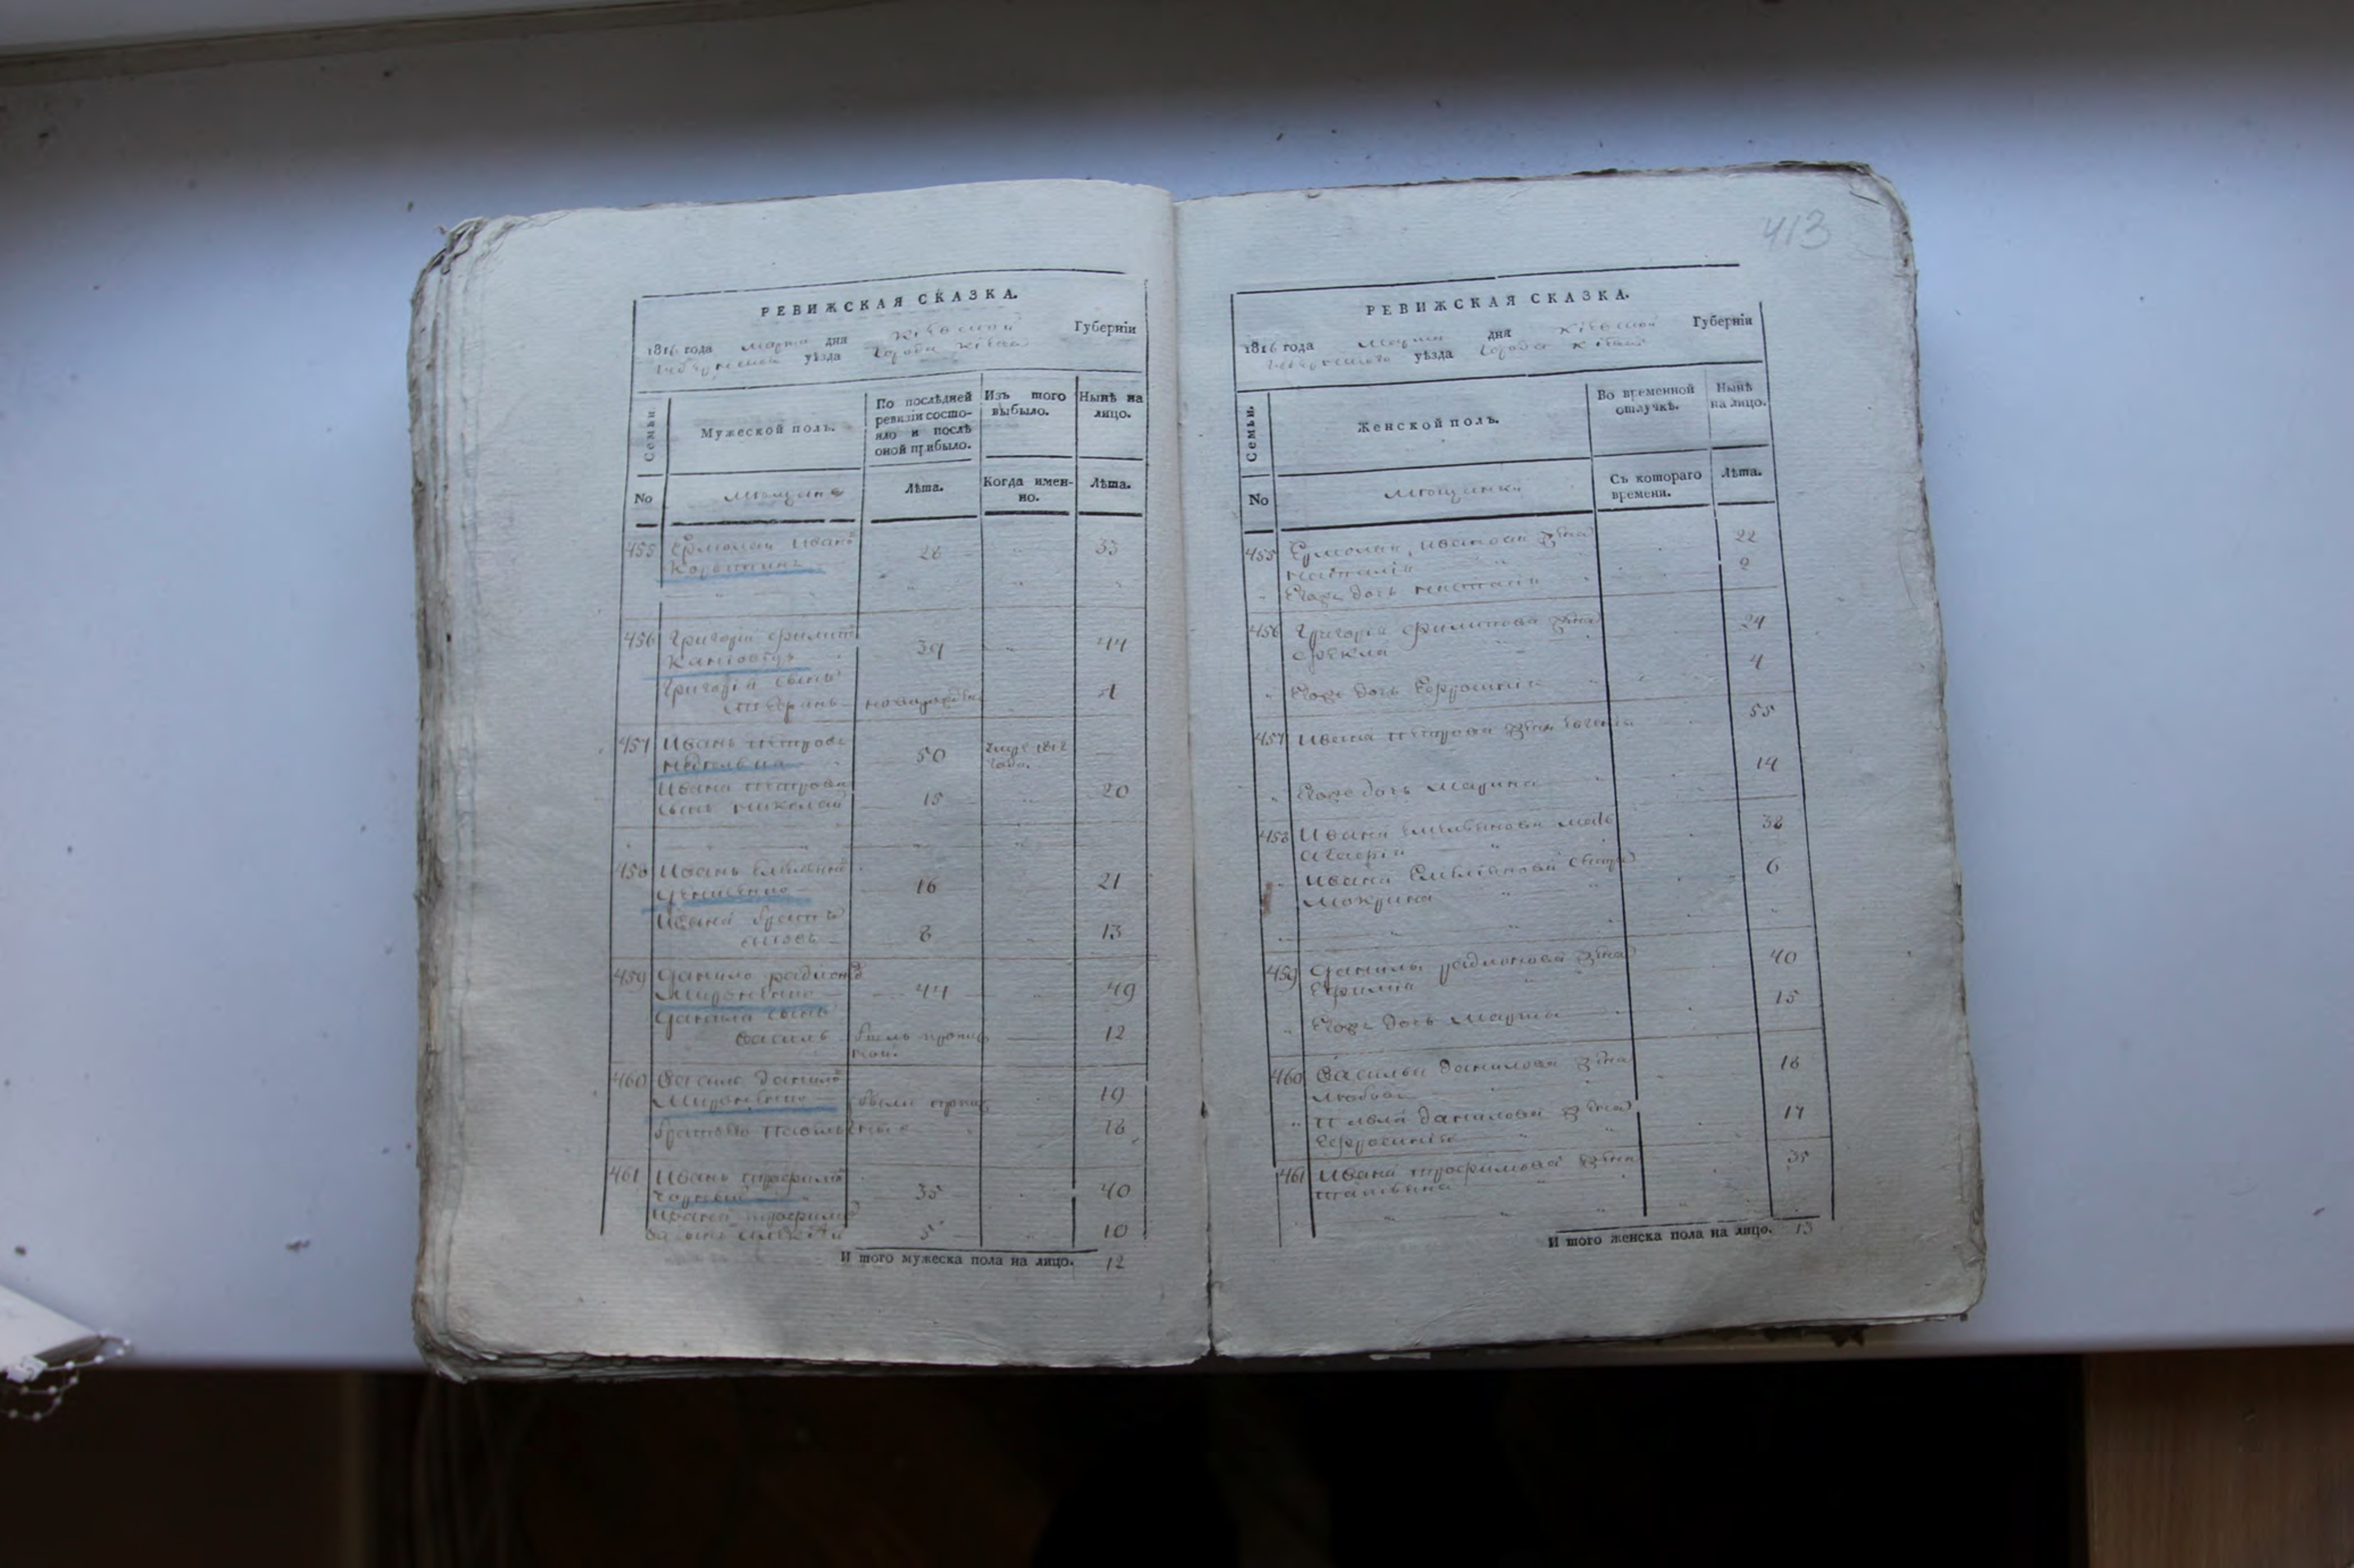 413
РЕВИЖСКАЯ СКАЗКА.
1816 года марта дня Кіевской Губерніи
уѣзда Города Кіева
Семьи.
Мужеской полъ.
По послѣдней ревизіи состояло и послѣ оной прибыло.
Изъ того выбыло.
Нынѣ на лицо.
No
мещане
Лѣта.
Когда именно.
Лѣта.
455 Ермолай Ивановъ
28 33
456 Григорій Филиповъ
39 44
Григорія сынъ
новорожден 4
457 Иванъ Петровъ
50 1812 года.
Ивана Петрова
сынъ Николай 15 20
458 Иванъ Емельяновъ
16 21
Ивана братъ
Яковъ 8 13
459 Данило Радіоновъ
Мироненко 44 49
Данила сынъ
Василь 12
460 Василь Даниловъ
Мироненко 19
18
461 Иванъ Трофимовъ
Чорный 35 40
Ивана Трофимова
сынъ Алексѣй 5 10
И того мужеска пола на лицо. 12
РЕВИЖСКАЯ СКАЗКА.
1816 года Марта дня Кіевской Губерніи
уѣзда Города Кіева
Семьи.
Женской полъ.
Во временной отлучкѣ.
Нынѣ на лицо.
No
мещанки
Съ котораго времени.
Лѣта.
455 Ермолая Иванова жена
Наталія 22
Его же дочь Анастасія 2
456 Григорія Филипова жена
Фекла 24
Его же дочь Ефросинія 4
457 Ивана Петрова жена 55
Его же дочь Марина 14
458 Ивана Емельянова мать
Агафія 38
Ивана Емельянова сестра
Мокрина 6
459 Данилы Радіонова жена
Ефимія 40
Его же дочь Марфа 15
460 Василья Данилова жена
Любовь 18
Павла Данилова жена
Ефросинія 17
461 Ивана Трофимова жена
Татьяна 35
И того женска пола на лицо. 13